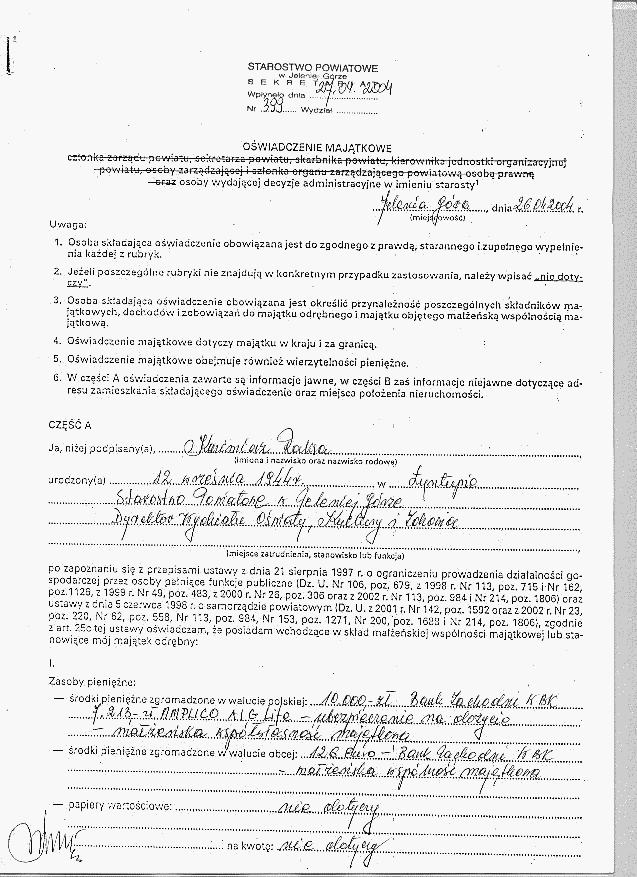 STAROSTWO POWIATOWE
w Jeleniej Górze
S E K R E T
27.04.2004
Wpłynęło dnia
Nr 399 Wydział
OŚWIADCZENIE MAJĄTKOWE
członka zarządu powiatu, sekretarza powiatu, skarbnika powiatu, kierownika jednostki organizacyjnej
powiatu, osoby zarządzającej i członka organu zarządzającego powiatową osobą prawną
oraz osoby wydającej decyzje administracyjne w imieniu starosty¹
Jelenia Góra, dnia 26.04.2004 r.
(miejscowość)
Uwaga:
1. Osoba składająca oświadczenie obowiązana jest do zgodnego z prawdą, starannego i zupełnego wypełnie-
nia każdej z rubryk.
2. Jeżeli poszczególne rubryki nie znajdują w konkretnym przypadku zastosowania, należy wpisać „nie doty-
czy”.
3. Osoba składająca oświadczenie obowiązana jest określić przynależność poszczególnych składników ma-
jątkowych, dochodów i zobowiązań do majątku odrębnego i majątku objętego małżeńską wspólnością ma-
jątkową.
4. Oświadczenie majątkowe dotyczy majątku w kraju i za granicą.
5. Oświadczenie majątkowe obejmuje również wierzytelności pieniężne.
6. W części A oświadczenia zawarte są informacje jawne, w części B zaś informacje niejawne dotyczące ad-
resu zamieszkania składającego oświadczenie oraz miejsca położenia nieruchomości.
CZĘŚĆ A
Ja, niżej podpisany(a),
(imiona i nazwisko oraz nazwisko rodowe)
urodzony(a) 12 września 1944r. w Łyntupie
Starostwo Powiatowe w Jeleniej Górze
Dyrektor Wydziału Oświaty, Kultury i Zdrowia
(miejsce zatrudnienia, stanowisko lub funkcja)
po zapoznaniu się z przepisami ustawy z dnia 21 sierpnia 1997 r. o ograniczeniu prowadzenia działalności go-
spodarczej przez osoby pełniące funkcje publiczne (Dz. U. Nr 106, poz. 679, z 1998 r. Nr 113, poz. 715 i Nr 162,
poz. 1126, z 1999 r. Nr 49, poz. 483, z 2000 r. Nr 26, poz. 306 oraz z 2002 r. Nr 113, poz. 984 i Nr 214, poz. 1806) oraz
ustawy z dnia 5 czerwca 1998 r. o samorządzie powiatowym (Dz. U. z 2001 r. Nr 142, poz. 1592 oraz z 2002 r. Nr 23,
poz. 220, Nr 62, poz. 558, Nr 113, poz. 984, Nr 153, poz. 1271, Nr 200, poz. 1688 i Nr 214, poz. 1806), zgodnie
z art. 25c tej ustawy oświadczam, że posiadam wchodzące w skład małżeńskiej wspólności majątkowej lub sta-
nowiące mój majątek odrębny:
I.
Zasoby pieniężne:
— środki pieniężne zgromadzone w walucie polskiej: 10.000-zł Bank Zachodni KBK
7.213-zł AMPLICO AIG Life – ubezpieczenie na dożycie
– małżeńska współwłasność majątkowa
— środki pieniężne zgromadzone w walucie obcej: 126 euro – Bank Zachodni KBK
– małżeńska wspólność majątkowa
— papiery wartościowe: nie dotyczy
na kwotę: nie dotyczy